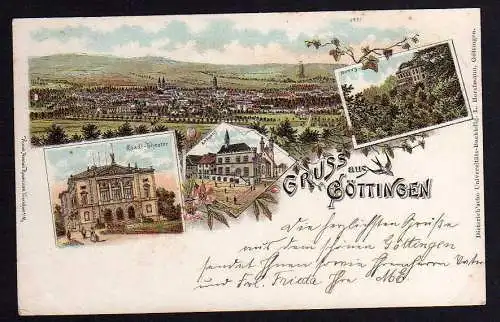 Stadt-Theater
GRUSS aus
GÖTTINGEN
Die herzlichsten Grüße
aus dem schönen Göttingen
sendet Ihnen sowie Ihrem Herrn Vater
und Frl. Frieda Ihre
Dieterich'sche Universitäts-Buchhdlg. L. Horstmann, Göttingen.